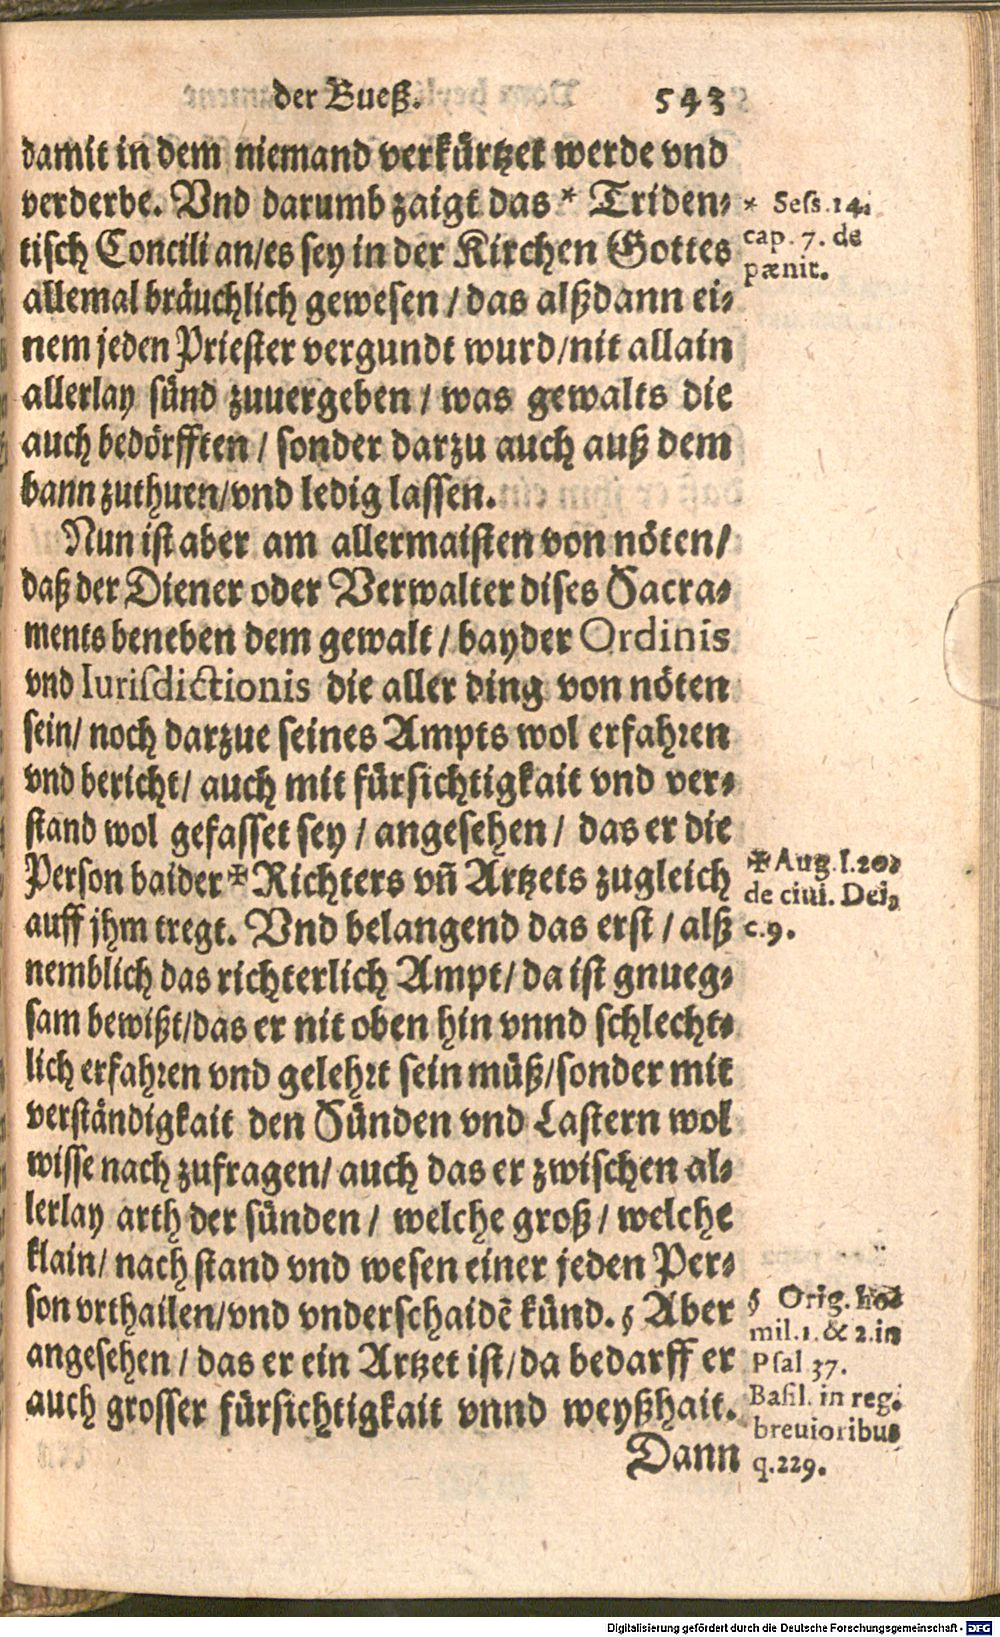 der Bueß. 543
damit in dem niemand verkürtzet werde vnd
verderbe. Vnd darumb zaigt das * Triden⸗
tisch Concili an/es sey in der Kirchen Gottes
allemal bräuchlich gewesen / das alßdann ei⸗
nem jeden Priester vergundt wurd/nit allain
allerlay sünd zuuergeben / was gewalts die
auch bedörfften / sonder darzu auch auß dem
bann zuthuen/vnd ledig lassen.
* Sess. 14.
cap. 7. de
pænit.
Nun ist aber am allermaisten von nöten/
daß der Diener oder Verwalter dises Sacra⸗
ments beneben dem gewalt / bayder Ordinis
vnd Iurisdictionis die aller ding von nöten
sein/ noch darzue seines Ampts wol erfahren
vnd bericht/ auch mit fürsichtigkait vnd ver⸗
stand wol gefasset sey / angesehen / das er die
Person baider ✠ Richters vñ Artzets zugleich
auff jhm tregt. Vnd belangend das erst / alß
nemblich das richterlich Ampt/ da ist gnueg⸗
sam bewißt/das er nit oben hin vnnd schlecht⸗
lich erfahren vnd gelehrt sein müß/sonder mit
verständigkait den Sünden vnd Lastern wol
wisse nach zufragen/ auch das er zwischen al⸗
lerlay arth der sünden / welche groß / welche
klain/ nach stand vnd wesen einer jeden Per⸗
son vrthailen/vnd vnderschaidẽ künd. § Aber
angesehen / das er ein Artzet ist/da bedarff er
auch grosser fürsichtigkait vnnd weyßhait.
✠ Aug. l. 20.
de ciui. Dei,
c. 9.
§ Orig. ho⸗
mil. 1. & 2. in
Psal 37.
Basil. in reg.
breuioribus
q. 229.
Dann
Digitalisierung gefördert durch die Deutsche Forschungsgemeinschaft - DFG